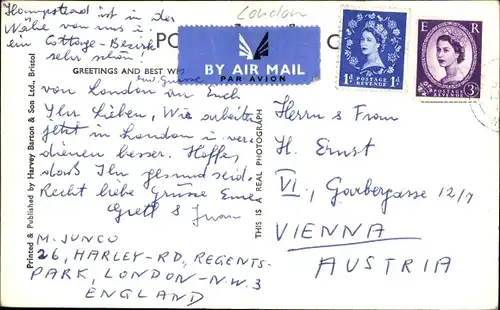 London
Hampstead ist in der
Nähe von uns u
ein Cottage-Bezirk
sehr schön!
PO
C
BY AIR MAIL
PAR AVION
GREETINGS AND BEST WIS
und Grüsse
von London an Euch
Ihr Lieben, Wir arbeiten
jetzt in London u. ver-
dienen besser. Hoffe,
dass Ihr gesund seid.
Recht liebe Grüsse Eure
Gretl & Juan
M. JUNCO
26, HARLEY-RD, REGENTS-
PARK, LONDON-N.W.3
ENGLAND
Printed & Published by Harvey Barton & Son Ltd., Bristol
THIS IS A REAL PHOTOGRAPH
1D POSTAGE REVENUE 1D
E R
POSTAGE REVENUE 3D
Herrn & Frau
H. Ernst
VI., Garbergasse 12/7
VIENNA
AUSTRIA